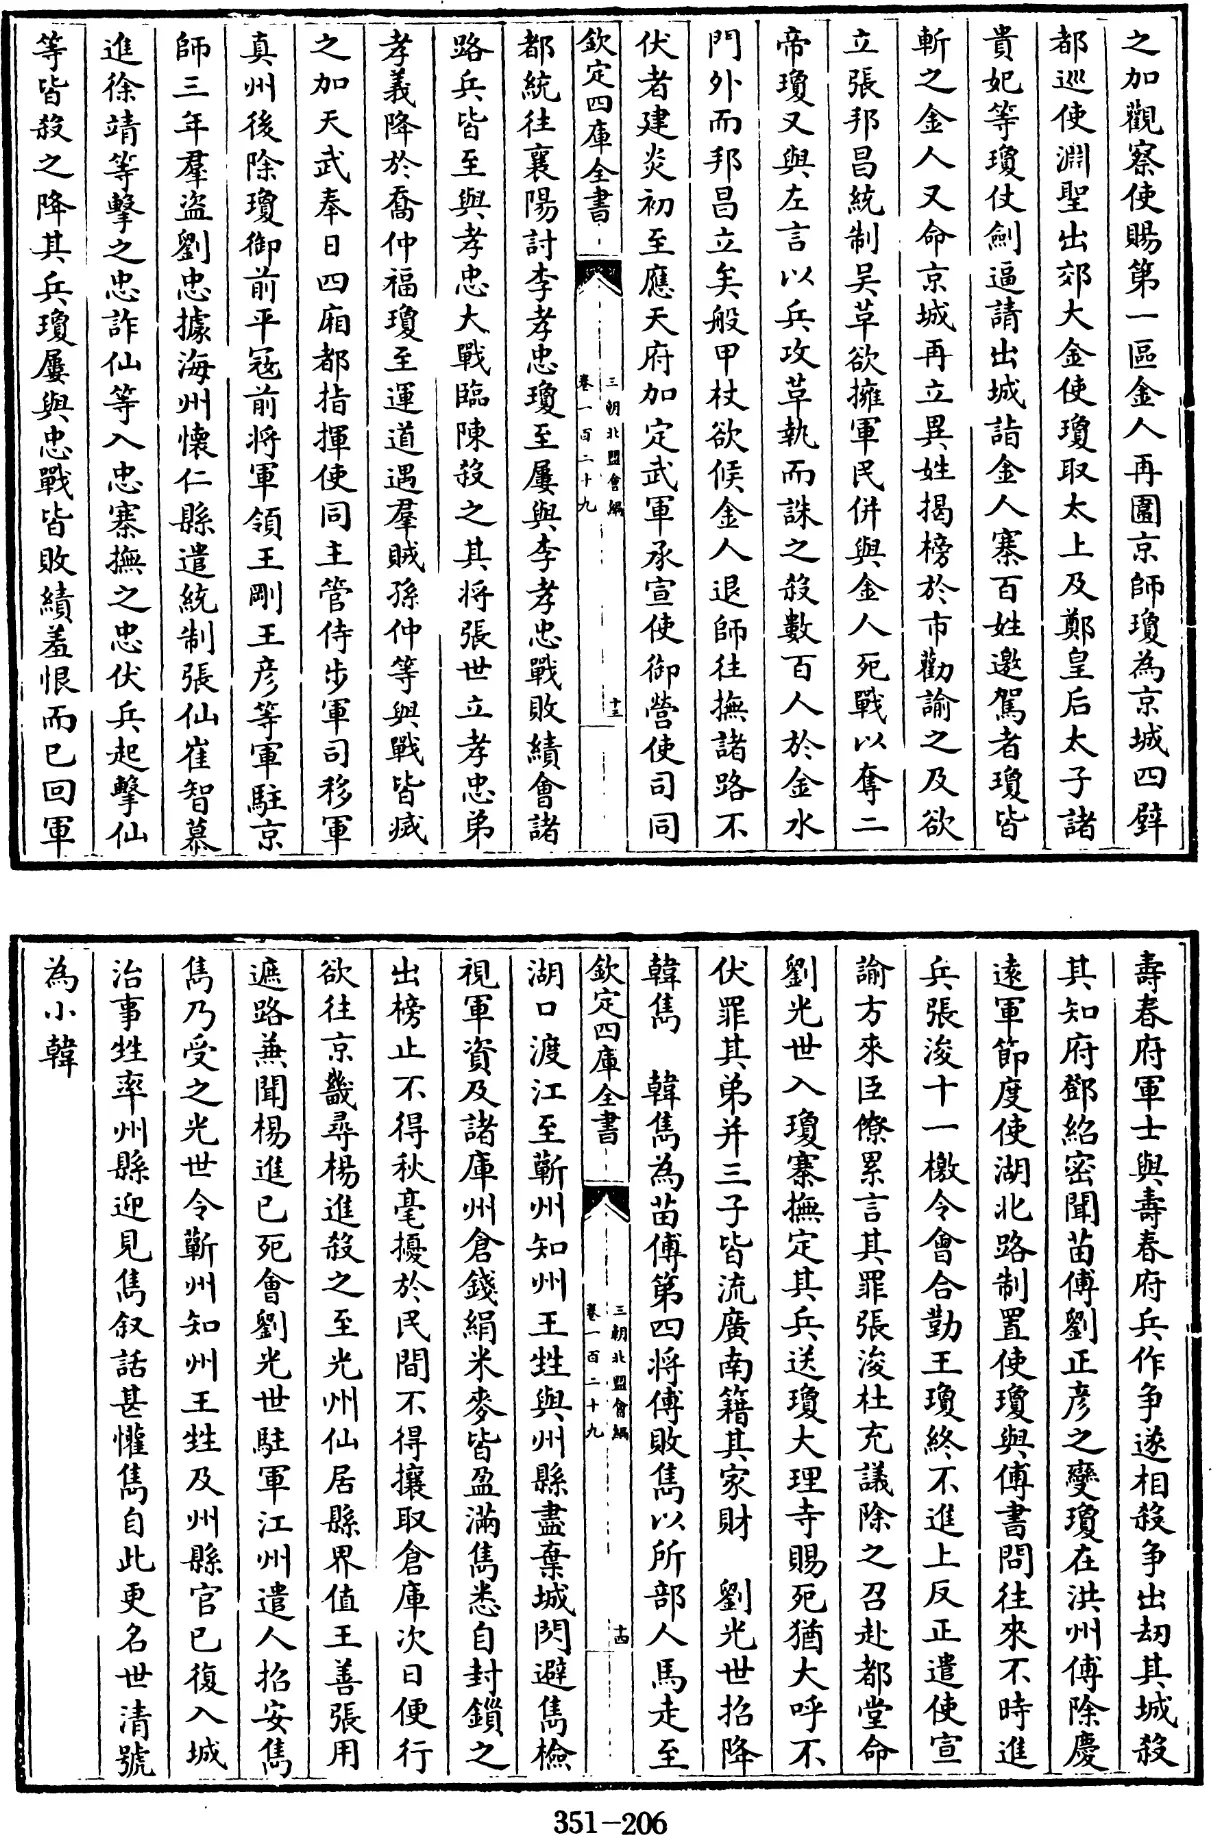 之加觀察使賜第一區金人再圍京師瓊為京城四壁
都巡使淵聖出郊大金使瓊取太上及鄭皇后太子諸
貴妃等瓊仗劍逼請出城詣金人寨百姓邀駕者瓊皆
斬之金人又命京城再立異姓揭榜於市勸諭之及欲
立張邦昌統制吴革欲擁軍民併與金人死戰以奪二
帝瓊又與左言以兵攻革執而誅之殺數百人於金水
門外而邦昌立矣般甲杖欲候金人退師往撫諸路不
伏者建炎初至應天府加定武軍承宣使御營使司同
欽定四庫全書
三朝北盟會編
卷一百二十九
十三
都統往襄陽討李孝忠瓊至屢與李孝忠戰敗績會諸
路兵皆至與孝忠大戰臨陳殺之其将張世立孝忠弟
孝義降於喬仲福瓊至運道遇羣賊孫仲等與戰皆㓕
之加天武奉日四廂都指揮使同主管侍步軍司移軍
真州後除瓊御前平冦前將軍領王剛王彥等軍駐京
師三年羣盜劉忠據海州懐仁縣遣統制張仙崔智慕
進徐靖等擊之忠詐仙等入忠寨撫之忠伏兵起擊仙
等皆殺之降其兵瓊屢與忠戰皆敗績羞恨而已回軍
壽春府軍士與壽春府兵作争遂相殺争出刼其城殺
其知府鄧紹密聞苗傅劉正彥之變瓊在洪州傅除慶
逺軍節度使湖北路制置使瓊與傅書問往來不時進
兵張浚十一檄令會合勤王瓊終不進上反正遣使宣
諭方來臣僚累言其罪張浚杜充議除之召赴都堂命
劉光世入瓊寨撫定其兵送瓊大理寺賜死猶大呼不
伏罪其弟并三子皆流廣南籍其家財　劉光世招降
韓雋　韓雋為苗傅第四將傅敗雋以所部人馬走至
欽定四庫全書
三朝北盟會編
卷一百二十九
十四
湖口渡江至蘄州知州王甡與州縣盡棄城閃避雋檢
視軍資及諸庫州倉錢絹米麥皆盈滿雋悉自封鎖之
出榜止不得秋毫擾於民間不得攘取倉庫次日便行
欲往京畿尋楊進殺之至光州仙居縣界值王善張用
遮路兼聞楊進已死會劉光世駐軍江州遣人招安雋
雋乃受之光世令蘄州知州王甡及州縣官已復入城
治事甡率州縣迎見雋叙話甚懽雋自此更名世清號
為小韓
351-206